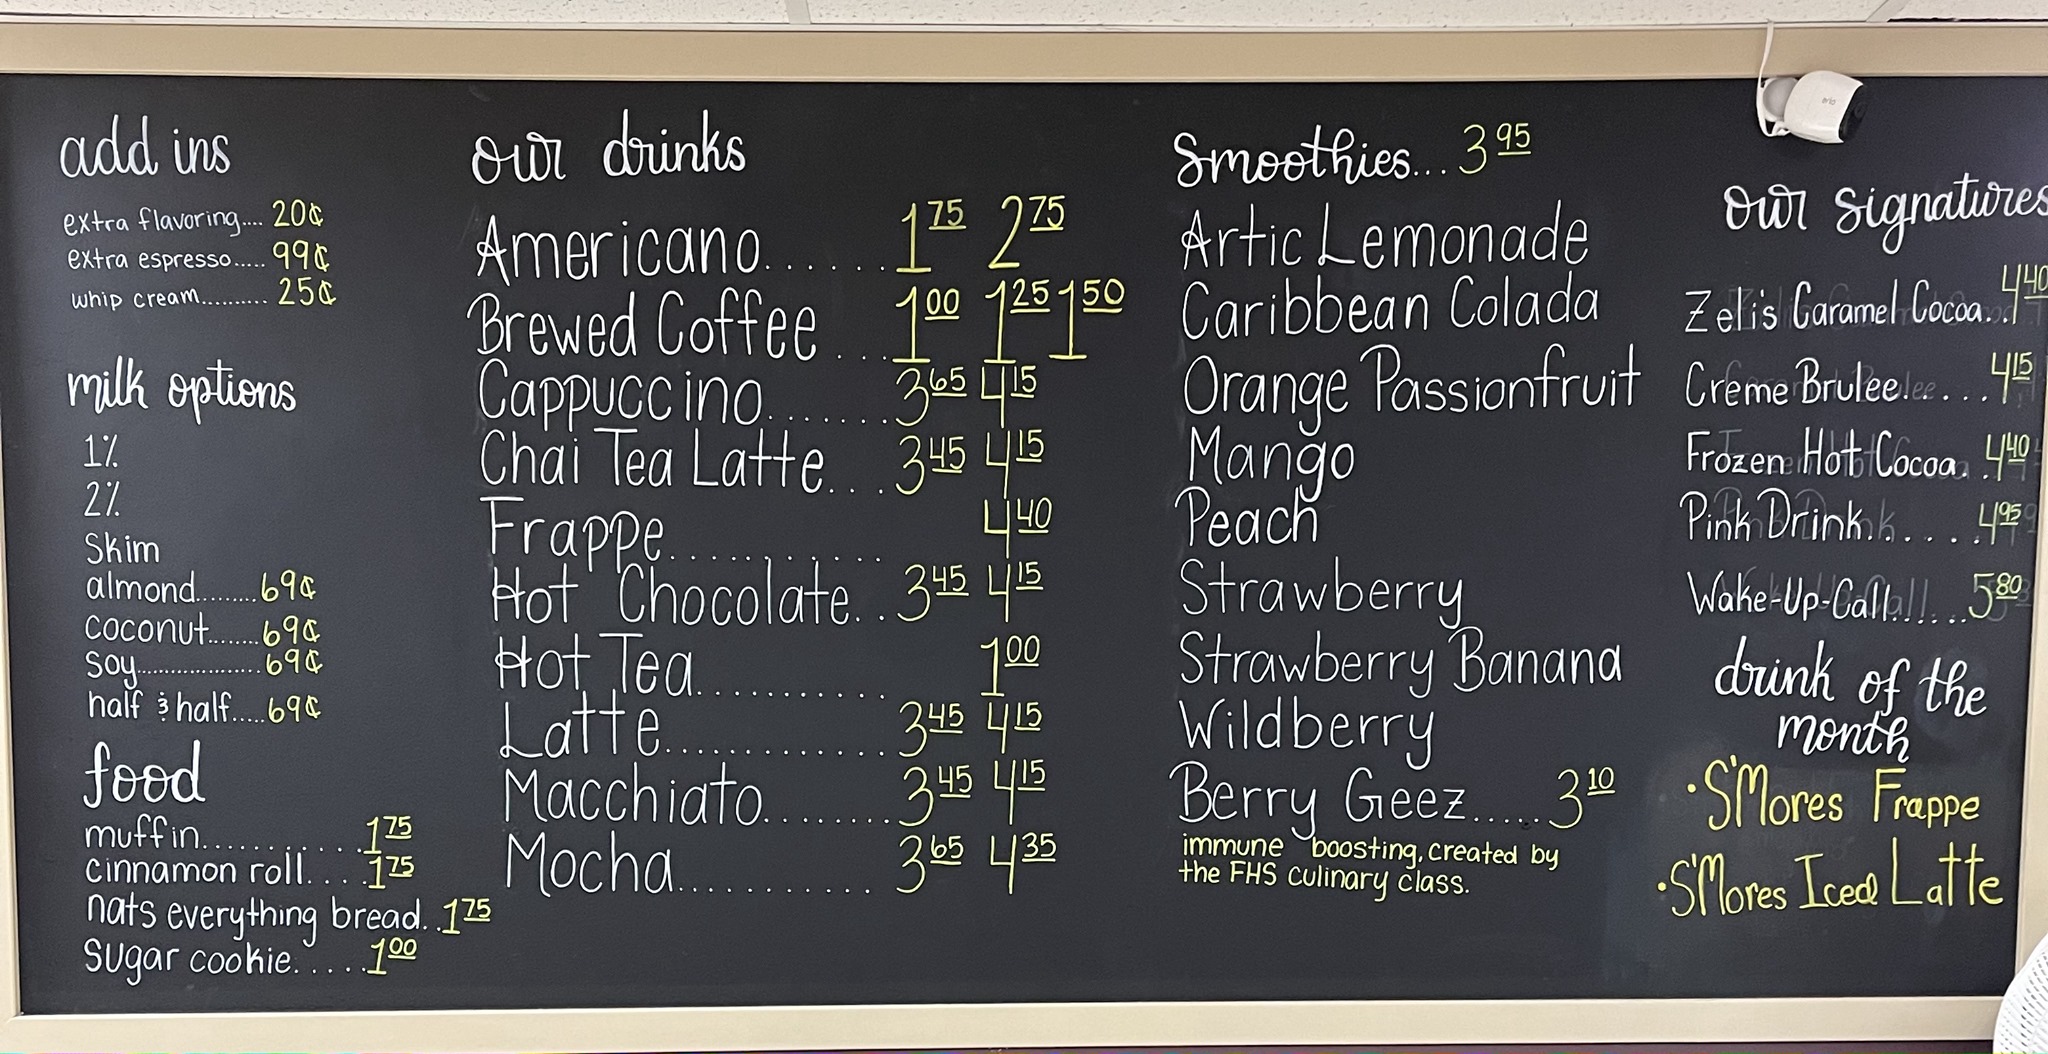 add ins
extra flavoring.... 20¢
extra espresso..... 99¢
whip cream.......... 25¢
milk options
1%
2%
Skim
almond.........69¢
coconut........69¢
soy...................69¢
half & half.....69¢
food
muffin............175
cinnamon roll....175
nats everything bread..175
sugar cookie.....100
our drinks
Americano...... 175 275
Brewed Coffee ... 100 125 150
Cappuccino....... 365 415
Chai Tea Latte... 345 415
Frappe........... 440
Hot Chocolate.. 345 415
Hot Tea........... 100
Latte............ 345 415
Macchiato........ 345 415
Mocha........... 365 435
Smoothies... 395
Artic Lemonade
Caribbean Colada
Orange Passionfruit
Mango
Peach
Strawberry
Strawberry Banana
Wildberry
Berry Geez.....310
immune boosting, created by
the FHS culinary class.
arlo
our signatures
Zeli's Caramel Cocoa..440
Creme Brulee......415
Frozen Hot Cocoa. 440
Pink Drink.......495
Wake-Up-Call......580
drink of the
month
•S'Mores Frappe
•S'Mores Iced Latte